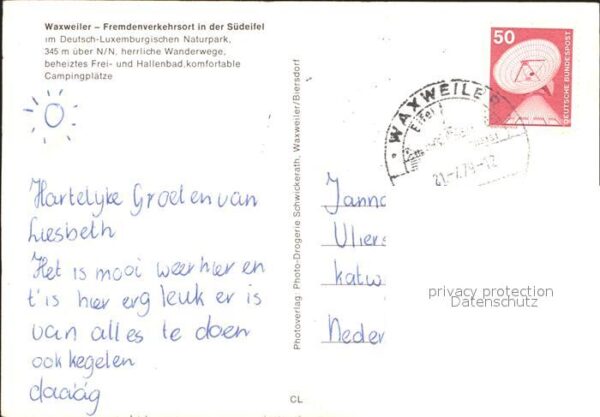 Waxweiler – Fremdenverkehrsort in der Südeifel
im Deutsch-Luxemburgischen Naturpark,
345 m über N/N, herrliche Wanderwege,
beheiztes Frei- und Hallenbad, komfortable
Campingplätze
Hartelijke Groeten van
Liesbeth
Het is mooi weer hier en
t'is hier erg leuk er is
van alles te doen
ook kegelen
daaág
Photoverlag: Photo-Drogerie Schwickerath, Waxweiler/Biersdorf
CL
50
DEUTSCHE BUNDESPOST
WAXWEILER
Eifel
Janna
Vliers
katw
Neder
privacy protection
Datenschutz